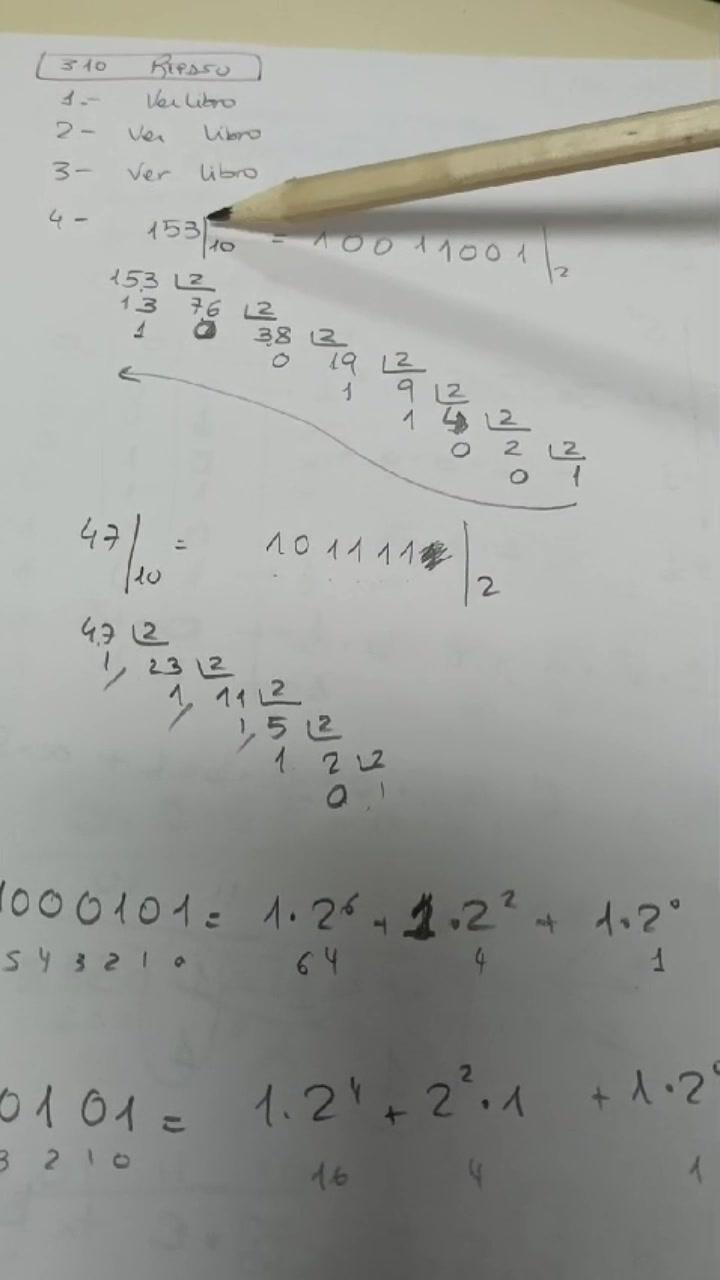 310 Repaso
1.- Ver libro
2- Ver libro
3- Ver libro
4- 153|10 = 10011001|2
153 |2
13 76 |2
1 0 38 |2
0 19 |2
1 9 |2
1 4 |2
0 2 |2
0 1
47|10 = 101111|2
47 |2
1, 23 |2
1, 11 |2
1, 5 |2
1 2 |2
0 1
1000101 = 1·2⁶ + 1·2² + 1·2⁰
5 4 3 2 1 0 64 4 1
0101 = 1·2⁴ + 2²·1 + 1·2⁰
3 2 1 0 16 4 1